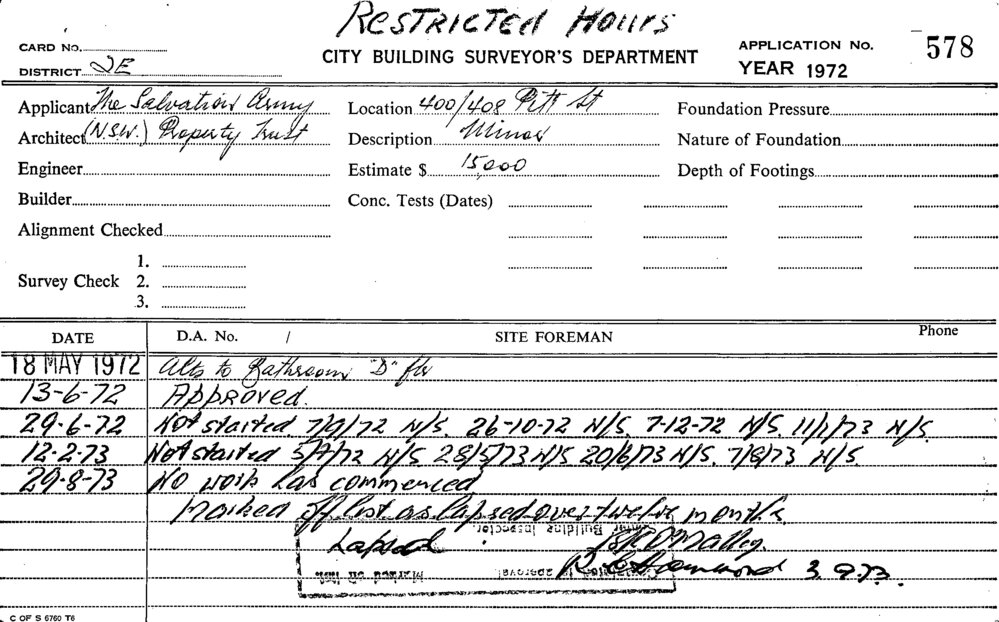 RESTRICTED HOURS
CARD No.
CITY BUILDING SURVEYOR'S DEPARTMENT
APPLICATION No. 578
DISTRICT
YEAR 1972
Applicant The Salvation Army
Location 400/408 Pitt St
Foundation Pressure
Architect (N.S.W.) Property Trust
Description Minor
Nature of Foundation
Engineer
Estimate $ 15,000
Depth of Footings
Builder
Conc. Tests (Dates)
Alignment Checked
1.
Survey Check 2.
3.
DATE D.A. No. / SITE FOREMAN Phone
18 MAY 1972 Alts to Bathroom "D" flr
13-6-72 Approved.
29-6-72 Not started 7/9/72 N/S. 26-10-72 N/S. 7-12-72 N/S 11/1/73 N/S.
12-2-73 Not started N/S 28/5/73 N/S 20/6/73 N/S. 7/8/73 N/S.
29-8-73 No work has commenced
Marked off list as lapsed over twelve months
Senior Building Inspector.
Lapsed
approval
Marked off
3.9.73.
C OF S 6760 T6